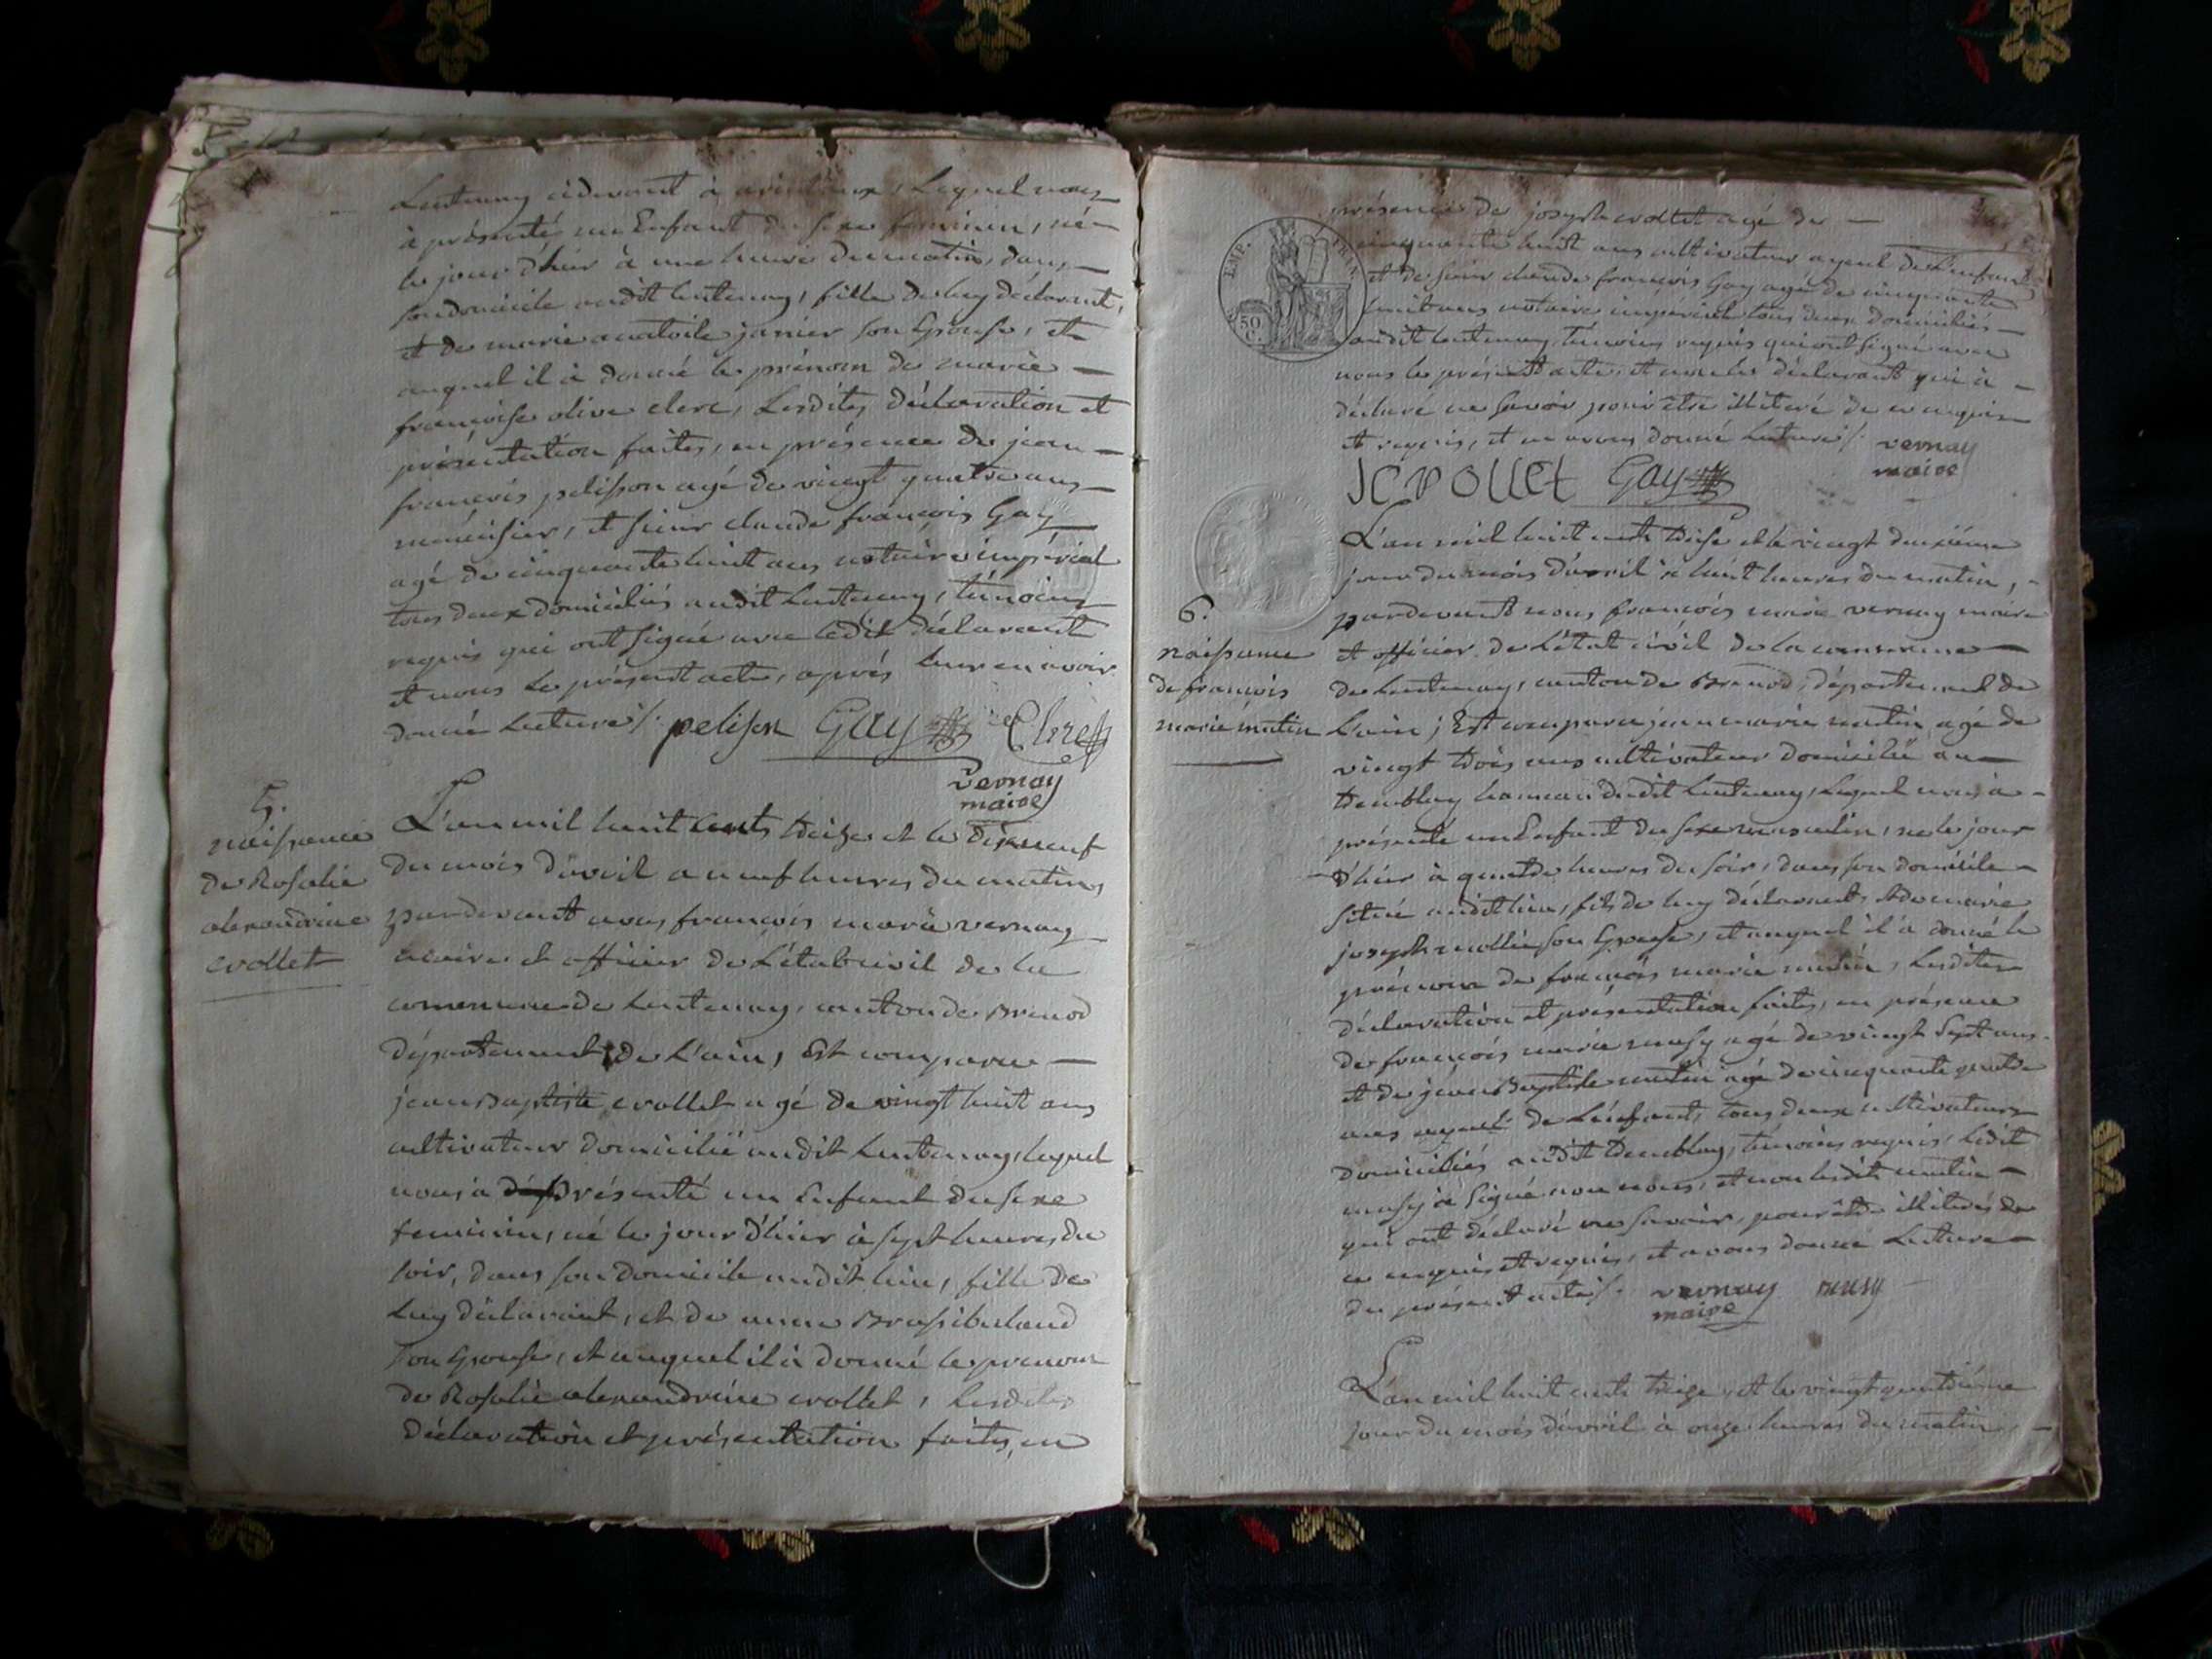 Lentenay cidevant à lequel nous
à présenté un Enfant du sexe feminin, né
le jour d'hier à une heure du matin, dans
son domicile audit lentenay, fille de luy déclarant,
et de marie anatoile janier son Epouse, et
auquel il à donné le prénom de marie
françoise olive clerc, Lesdites déclaration et
présentation faites, en présence de jean
françois pelisson agé de vingt quatre ans
menuisier, et sieur claude françois Gay
agé de cinquante huit ans notaire impérial
tous deux domiciliés audit Lentenay, témoins
requis qui ont signé avec ledit déclarant
et nous le présent acte, aprés leur en avoir
donné Lecture /. pelison Gay Clerc
vernay
maire
5.
naissance
de Rosalie
alexandrine
crollet
L'an mil huit cents treize et le dixneuf
du mois d'avril a neuf heures du matin,
pardevant nous françois marie vernay
maire et officier de L'état civil de la
commune de Lentenay, canton de Brenod
département de L'ain, Est comparu
jean Baptiste crollet agé de vingt huit ans
cultivateur domicilié audit Lentenay, lequel
nous a présenté un Enfant du sexe
feminin, né le jour d'hier à sept heures du
soir, dans son domicile audit lieu, fille de
luy déclarant, et de anne
son Epouse, et auquel il à donné le prenom
de Rosalie alexandrine crollet, Lesdites
déclaration et présentation faites, en
présence de joseph crollet agé de
cinquante huit ans cultivateur ayeul de L'enfant
et de sieur claude françois Gay agé de cinquante
huit ans notaire impérial tous deux domiciliés
audit lentenay, témoins requis qui ont signé avec
nous le présent acte, et non le déclarant qui à
déclaré ne savoir pour etre illiteré de ce enquis
et requis, et en avons donné lecture /. vernay
maire
EMP. FRAN.
50
C.
JCROLLET Gay
6.
naissance
de françois
marie mutin
L'an mil huit cents treise et le vingt deuxième
jour du mois d'avril à huit heures du matin,
pardevant nous françois marie vernay maire
et officier de L'état civil de la commune
de Lentenay, canton de Brenod, département de
L'ain; Est comparu jean marie mutin agé de
vingt trois ans cultivateur domicilié au
tremblay hameau dudit Lentenay, Lequel nous à
présenté un Enfant du sexe masculin, né le jour
d'hier à quatre heures du soir, dans son domicile
situé audit lieu, fils de luy déclarant, et de marie
josephe son Epouse, et auquel il à donné le
prénom de françois marie mutin, Lesdites
déclaration et présentation faites, en présence
de françois marie musy agé de vingt sept ans
et de jean Baptiste mutin agé de cinquante quatre
ans ayeul de L'enfant, tous deux cultivateurs
domiciliés audit tremblay, témoins requis, ledit
musy à signé avec nous, et non lesdits mutin
qui ont déclaré ne savoir, pour être illiterés de
ce enquis et requis, et avons donné Lecture
du présent acte /. vernay musy
maire
L'an mil huit cents treize, et le vingt quatrième
jour du mois d'avril à onze heures du matin,